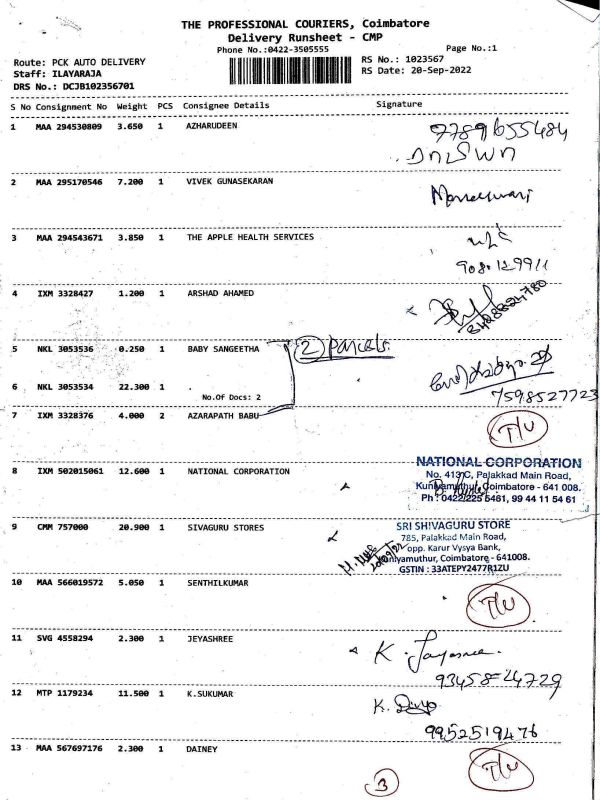 THE PROFESSIONAL COURIERS, Coimbatore
Delivery Runsheet - CMP
Phone No.:0422-3505555
Page No.:1
Route: PCK AUTO DELIVERY
RS No.: 1023567
Staff: ILAYARAJA
RS Date: 20-Sep-2022
DRS No.: DCJB102356701
S No Consignment No Weight PCS Consignee Details Signature
1 MAA 294530809 3.650 1 AZHARUDEEN
2 MAA 295170546 7.200 1 VIVEK GUNASEKARAN
3 MAA 294543671 3.850 1 THE APPLE HEALTH SERVICES
4 IXM 3328427 1.200 1 ARSHAD AHAMED
5 NKL 3053536 0.250 1 BABY SANGEETHA
2 Parcels
6 NKL 3053534 22.300 1
No.Of Docs: 2
7598527723
7 IXM 3328376 4.000 2 AZARAPATH BABU
8 IXM 502015061 12.600 1 NATIONAL CORPORATION
NATIONAL CORPORATION
No. 413/C, Palakkad Main Road,
Kuniyamuthur, Coimbatore - 641 008.
Ph : 0422 225 5461, 99 44 11 54 61
9 CMM 757000 20.900 1 SIVAGURU STORES
SRI SHIVAGURU STORE
785, Palakkad Main Road,
opp. Karur Vysya Bank,
Kuniyamuthur, Coimbatore - 641008.
GSTIN : 33ATEPY2477R1ZU
10 MAA 566019572 5.050 1 SENTHILKUMAR
11 SVG 4558294 2.300 1 JEYASHREE
K.
9345824729
12 MTP 1179234 11.500 1 K.SUKUMAR
K.
9952519476
13 MAA 567697176 2.300 1 DAINEY
3